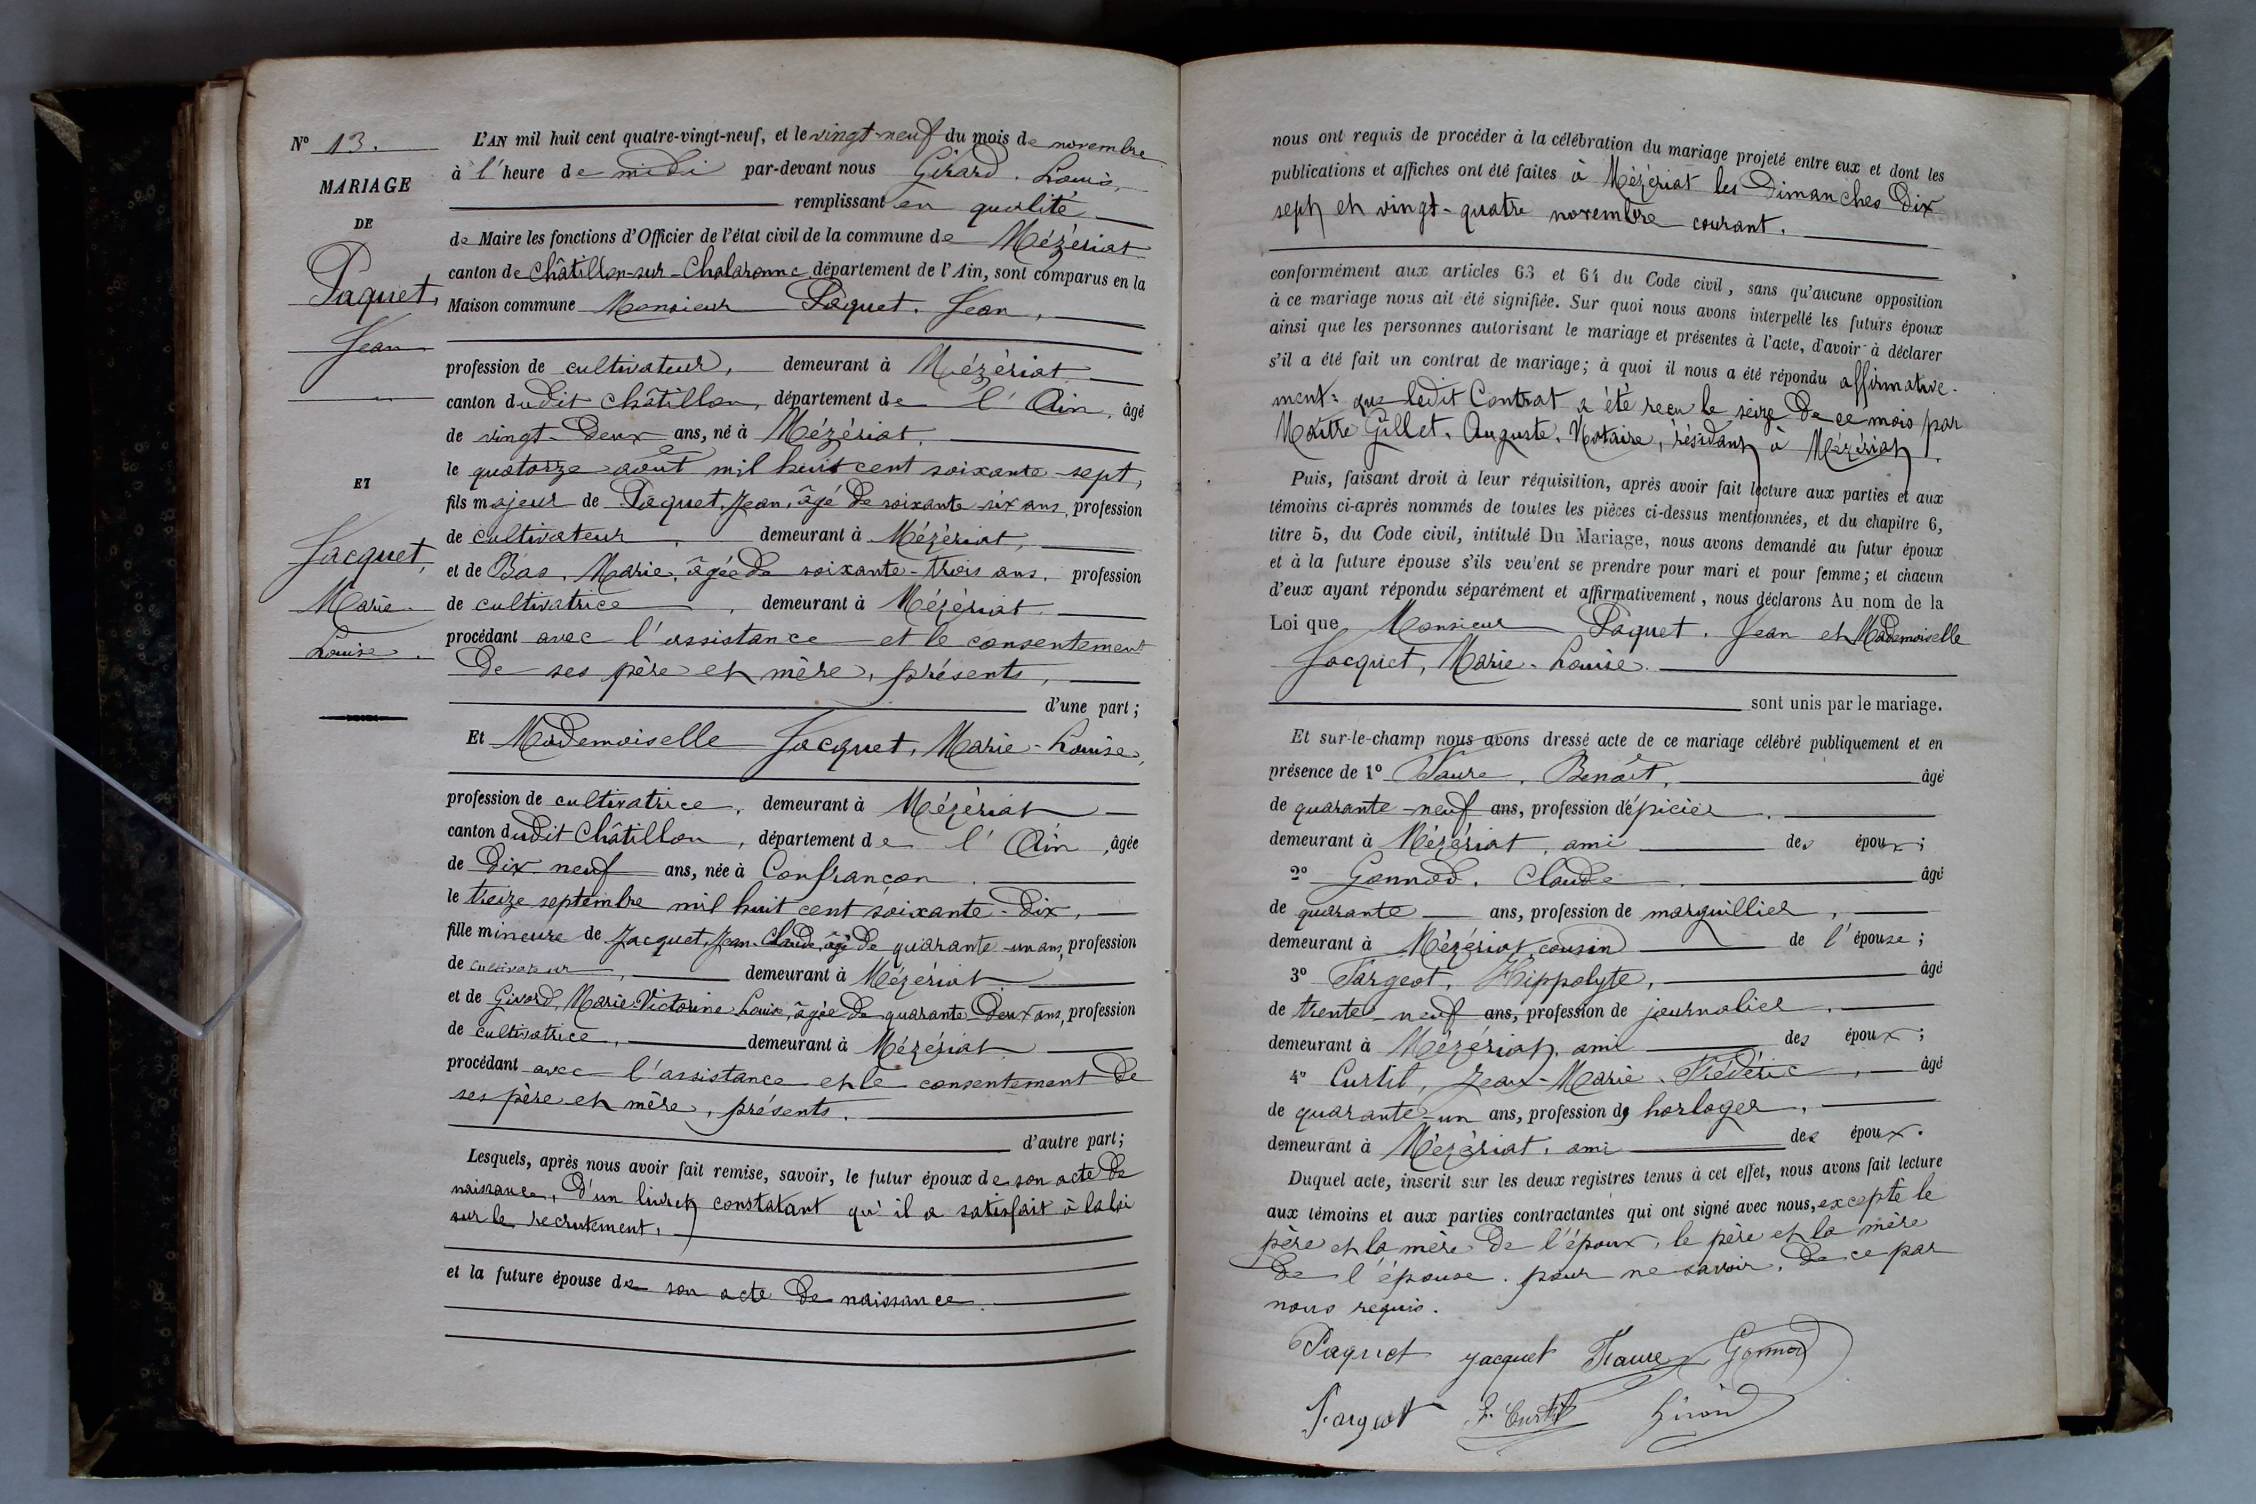 N° 13.
MARIAGE
DE
Paquet,
Jean
ET
Jacquet,
Marie
Louise.
L'AN mil huit cent quatre-vingt-neuf, et le vingt-neuf du mois de novembre
à l'heure de midi par-devant nous Girard. Louis,
remplissant en qualité
de Maire les fonctions d'Officier de l'état civil de la commune de Mézériat
canton de Châtillon-sur-Chalaronne département de l'Ain, sont comparus en la
Maison commune Monsieur Paquet. Jean,
profession de cultivateur, demeurant à Mézériat
canton dudit Châtillon, département de l'Ain, âgé
de vingt-deux ans, né à Mézériat,
le quatorze août mil huit cent soixante-sept,
fils majeur de Paquet, Jean, âgé de soixante six ans, profession
de cultivateur, demeurant à Mézériat,
et de Bas, Marie, âgée de soixante-trois ans, profession
de cultivatrice, demeurant à Mézériat
procédant avec l'assistance et le consentement
de ses père et mère, présents,
d'une part;
Et Mademoiselle Jacquet, Marie-Louise,
profession de cultivatrice, demeurant à Mézériat
canton dudit Châtillon, département de l'Ain, âgée
de dix neuf ans, née à Confrançon.
le treize septembre mil huit cent soixante-dix,
fille mineure de Jacquet, Jean-Claude, âgé de quarante-un ans, profession
de cultivateur, demeurant à Mézériat
et de Givord, Marie-Victorine Louise, âgée de quarante-deux ans, profession
de cultivatrice, demeurant à Mézériat
procédant avec l'assistance et le consentement de
ses père et mère, présents.
d'autre part;
Lesquels, après nous avoir fait remise, savoir, le futur époux de son acte de
naissance, d'un livret constatant qu'il a satisfait à la loi
sur le recrutement,
et la future épouse de son acte de naissance.
nous ont requis de procéder à la célébration du mariage projeté entre eux et dont les
publications et affiches ont été faites à Mézériat les Dimanches dix
sept et vingt-quatre novembre courant.
conformément aux articles 63 et 64 du Code civil, sans qu'aucune opposition
à ce mariage nous ait été signifiée. Sur quoi nous avons interpellé les futurs époux
ainsi que les personnes autorisant le mariage et présentes à l'acte, d'avoir à déclarer
s'il a été fait un contrat de mariage; à quoi il nous a été répondu affirmative-
ment: que ledit Contrat a été reçu le seize de ce mois par
Maître Gillet, Auguste, Notaire, résidant à Mézériat.
Puis, faisant droit à leur réquisition, après avoir fait lecture aux parties et aux
témoins ci-après nommés de toutes les pièces ci-dessus mentionnées, et du chapitre 6,
titre 5, du Code civil, intitulé Du Mariage, nous avons demandé au futur époux
et à la future épouse s'ils veulent se prendre pour mari et pour femme; et chacun
d'eux ayant répondu séparément et affirmativement, nous déclarons Au nom de la
Loi que Monsieur Paquet. Jean et Mademoiselle
Jacquet, Marie-Louise.
sont unis par le mariage.
Et sur-le-champ nous avons dressé acte de ce mariage célébré publiquement et en
présence de 1° Faure, Benoît, âgé
de quarante-neuf ans, profession d'épicier,
demeurant à Mézériat, ami des époux;
2° Gonnod, Claude, âgé
de quarante ans, profession de marguillier,
demeurant à Mézériat, cousin de l'épouse;
3° Fargeot, Hippolyte, âgé
de trente-neuf ans, profession de journalier,
demeurant à Mézériat, ami des époux;
4° Curtil, Jean-Marie-Frédéric, âgé
de quarante-un ans, profession d'horloger,
demeurant à Mézériat, ami des époux.
Duquel acte, inscrit sur les deux registres tenus à cet effet, nous avons fait lecture
aux témoins et aux parties contractantes qui ont signé avec nous, excepté le
père et la mère de l'époux, le père et la mère
de l'épouse, pour ne savoir, de ce par
nous requis.
Paquet Jacquet Faure Gonnod
Fargeot F. Curtil Girard